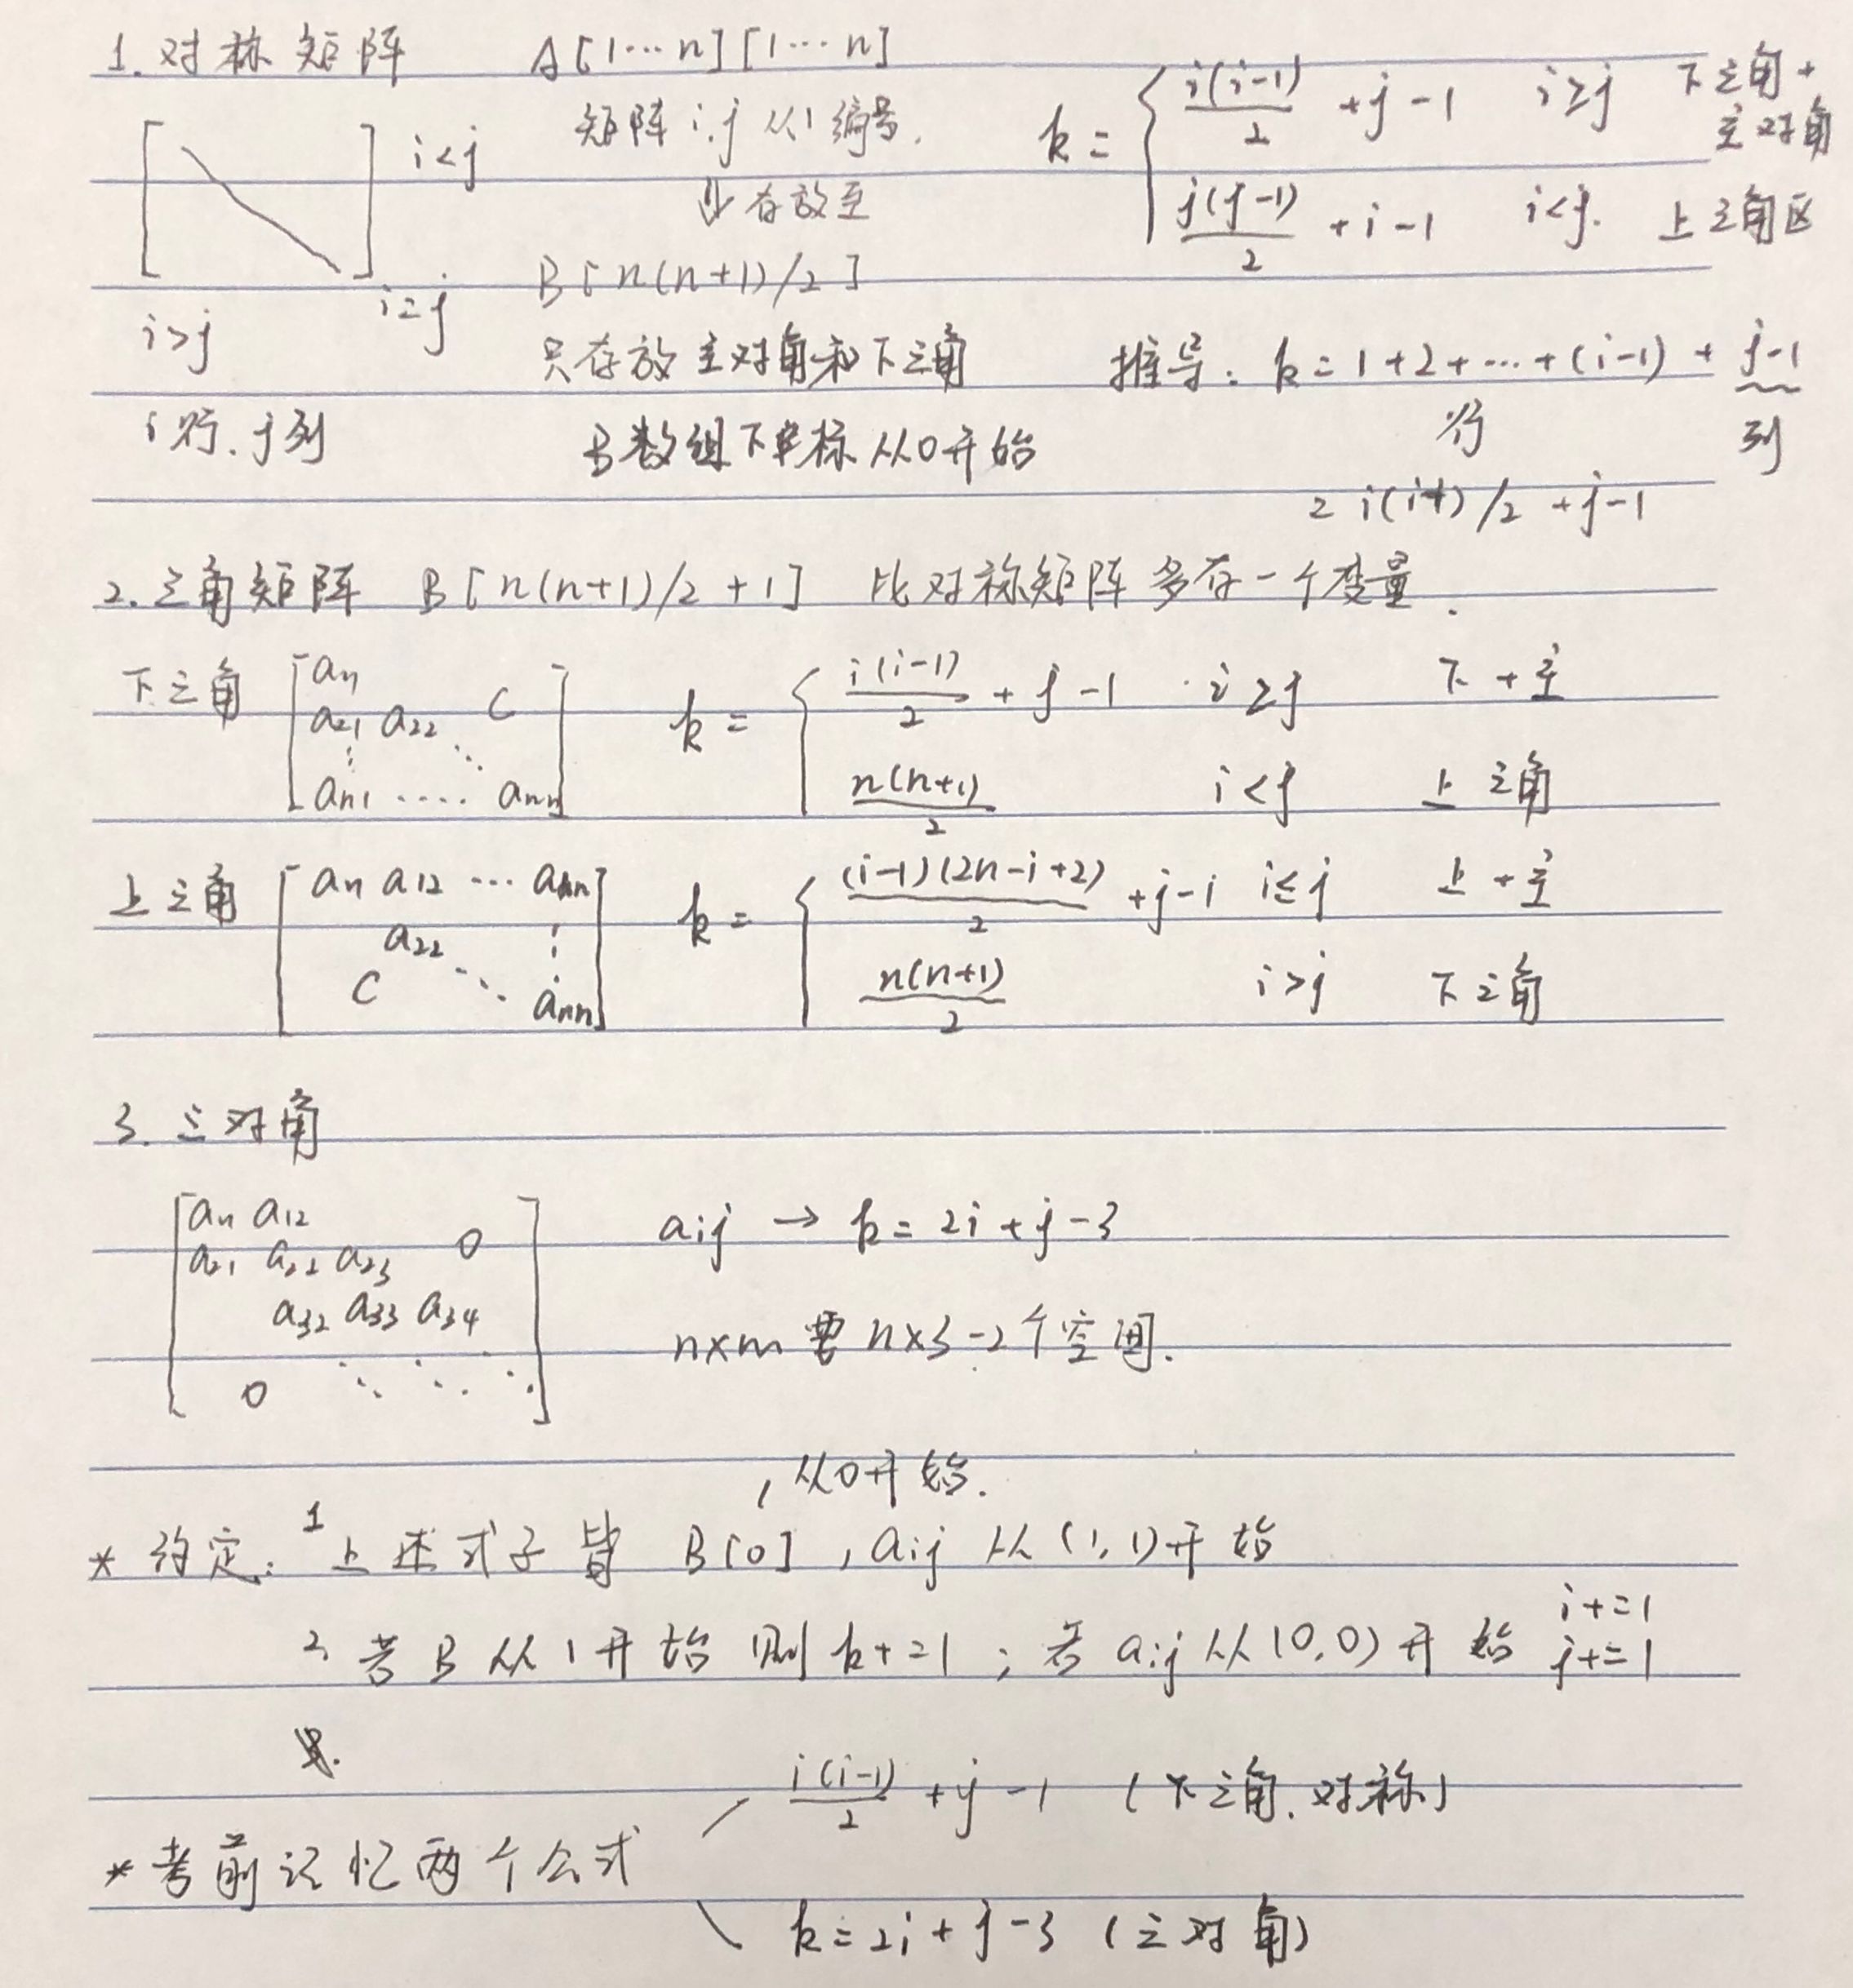 1. 对称矩阵 A[1…n][1…n]
矩阵 i.j 从1编号.
⇓存放至
B[n(n+1)/2]
只存放主对角和下三角
B数组下标从0开始
i<j
i=j
i>j
i行.j列
k = { i(i-1)/2 + j - 1 i≥j 下三角+主对角
j(j-1)/2 + i - 1 i<j. 上三角区
推导: k = 1+2+…+(i-1) + j-1
行 列
= i(i-1)/2 + j-1
2. 三角矩阵 B[n(n+1)/2 + 1] 比对称矩阵多存一个变量.
下三角 [ a11
a21 a22 C
⋮ ⋱
an1 …. ann ]
k = { i(i-1)/2 + j - 1 i≥j 下+主
n(n+1)/2 i<j 上三角
上三角 [ a11 a12 … ann
a22 ⋮
C ⋱ ann ]
k = { (i-1)(2n-i+2)/2 + j-i i≤j 上+主
n(n+1)/2 i>j 下三角
3. 三对角
[ a11 a12
a21 a22 a23 0
a32 a33 a34
0 ⋱ ⋱ ⋱ ]
aij → k = 2i + j - 3
n×m 要 n×3-2个空间.
, 从0开始.
* 约定: 1 上述式子皆 B[0] , aij 从(1,1)开始
2. 若B从1开始则k+=1 ; 若aij从(0,0)开始 i+=1 j+=1
* 考前记忆两个公式
i(i-1)/2 + j - 1 (下三角.对称)
k = 2i + j - 3 (三对角)